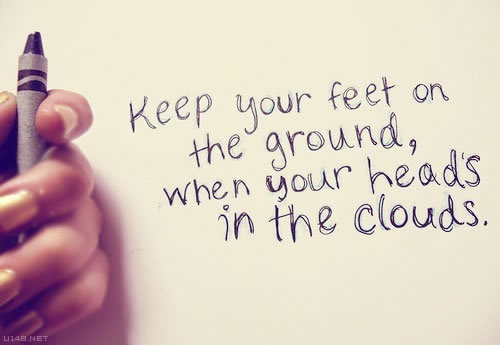 Keep your feet on
the ground,
when your head's
in the clouds.
U148.NET